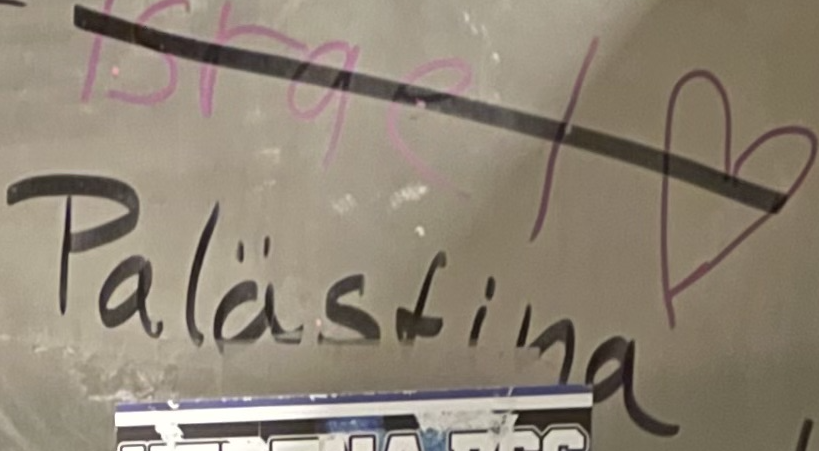 Israel
Palästina